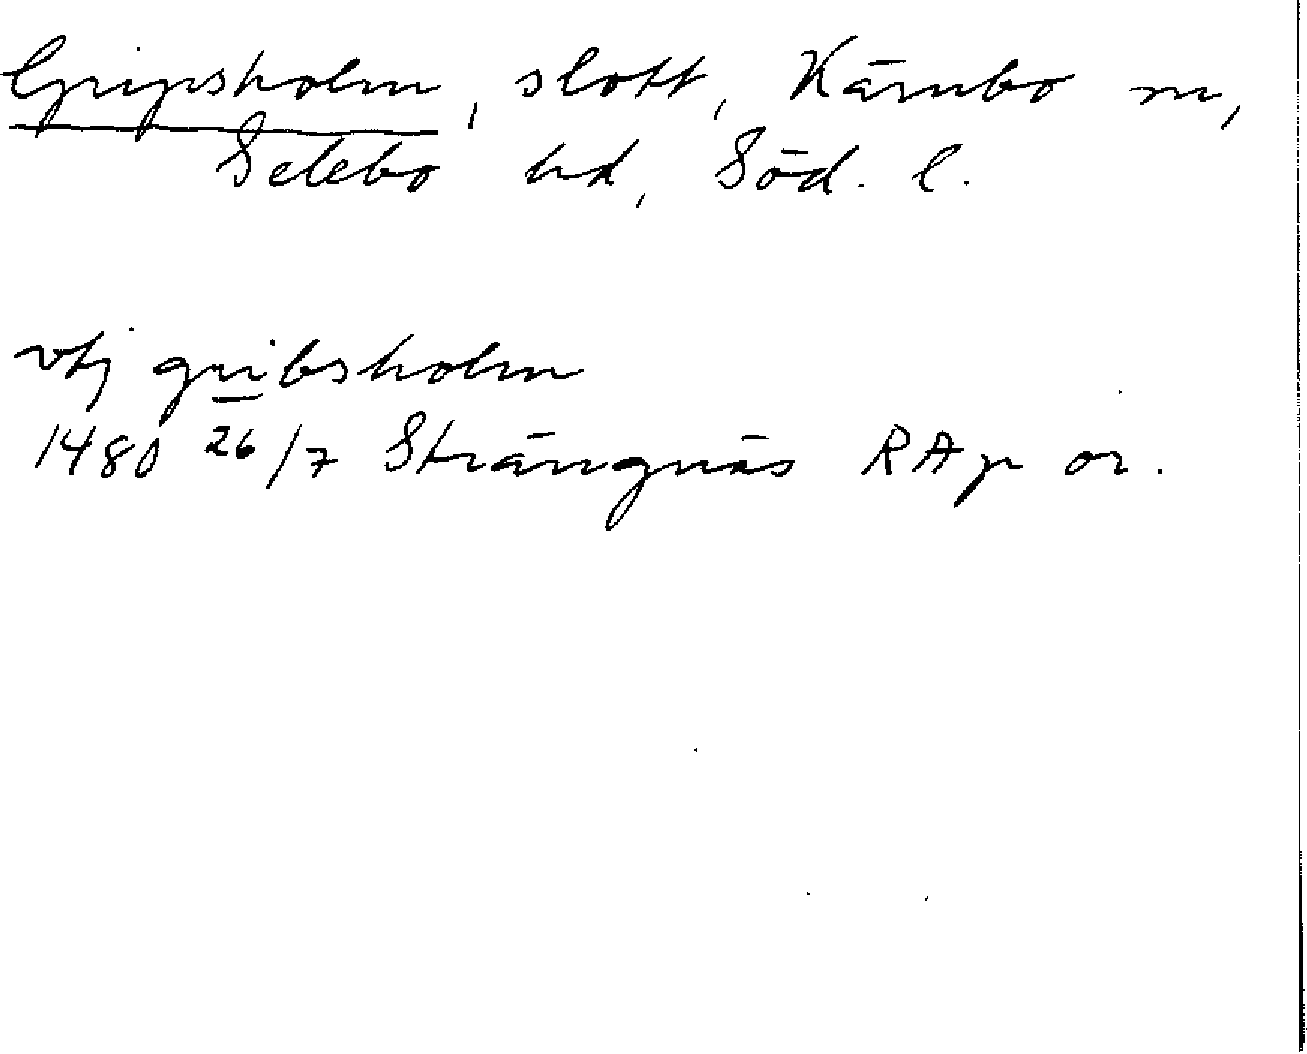 Gripsholm, slott, Kärnbo sn,
Selebo hd, Söd. l.
vtj gribsholm
1480 26/7 Strängnäs RAp or.